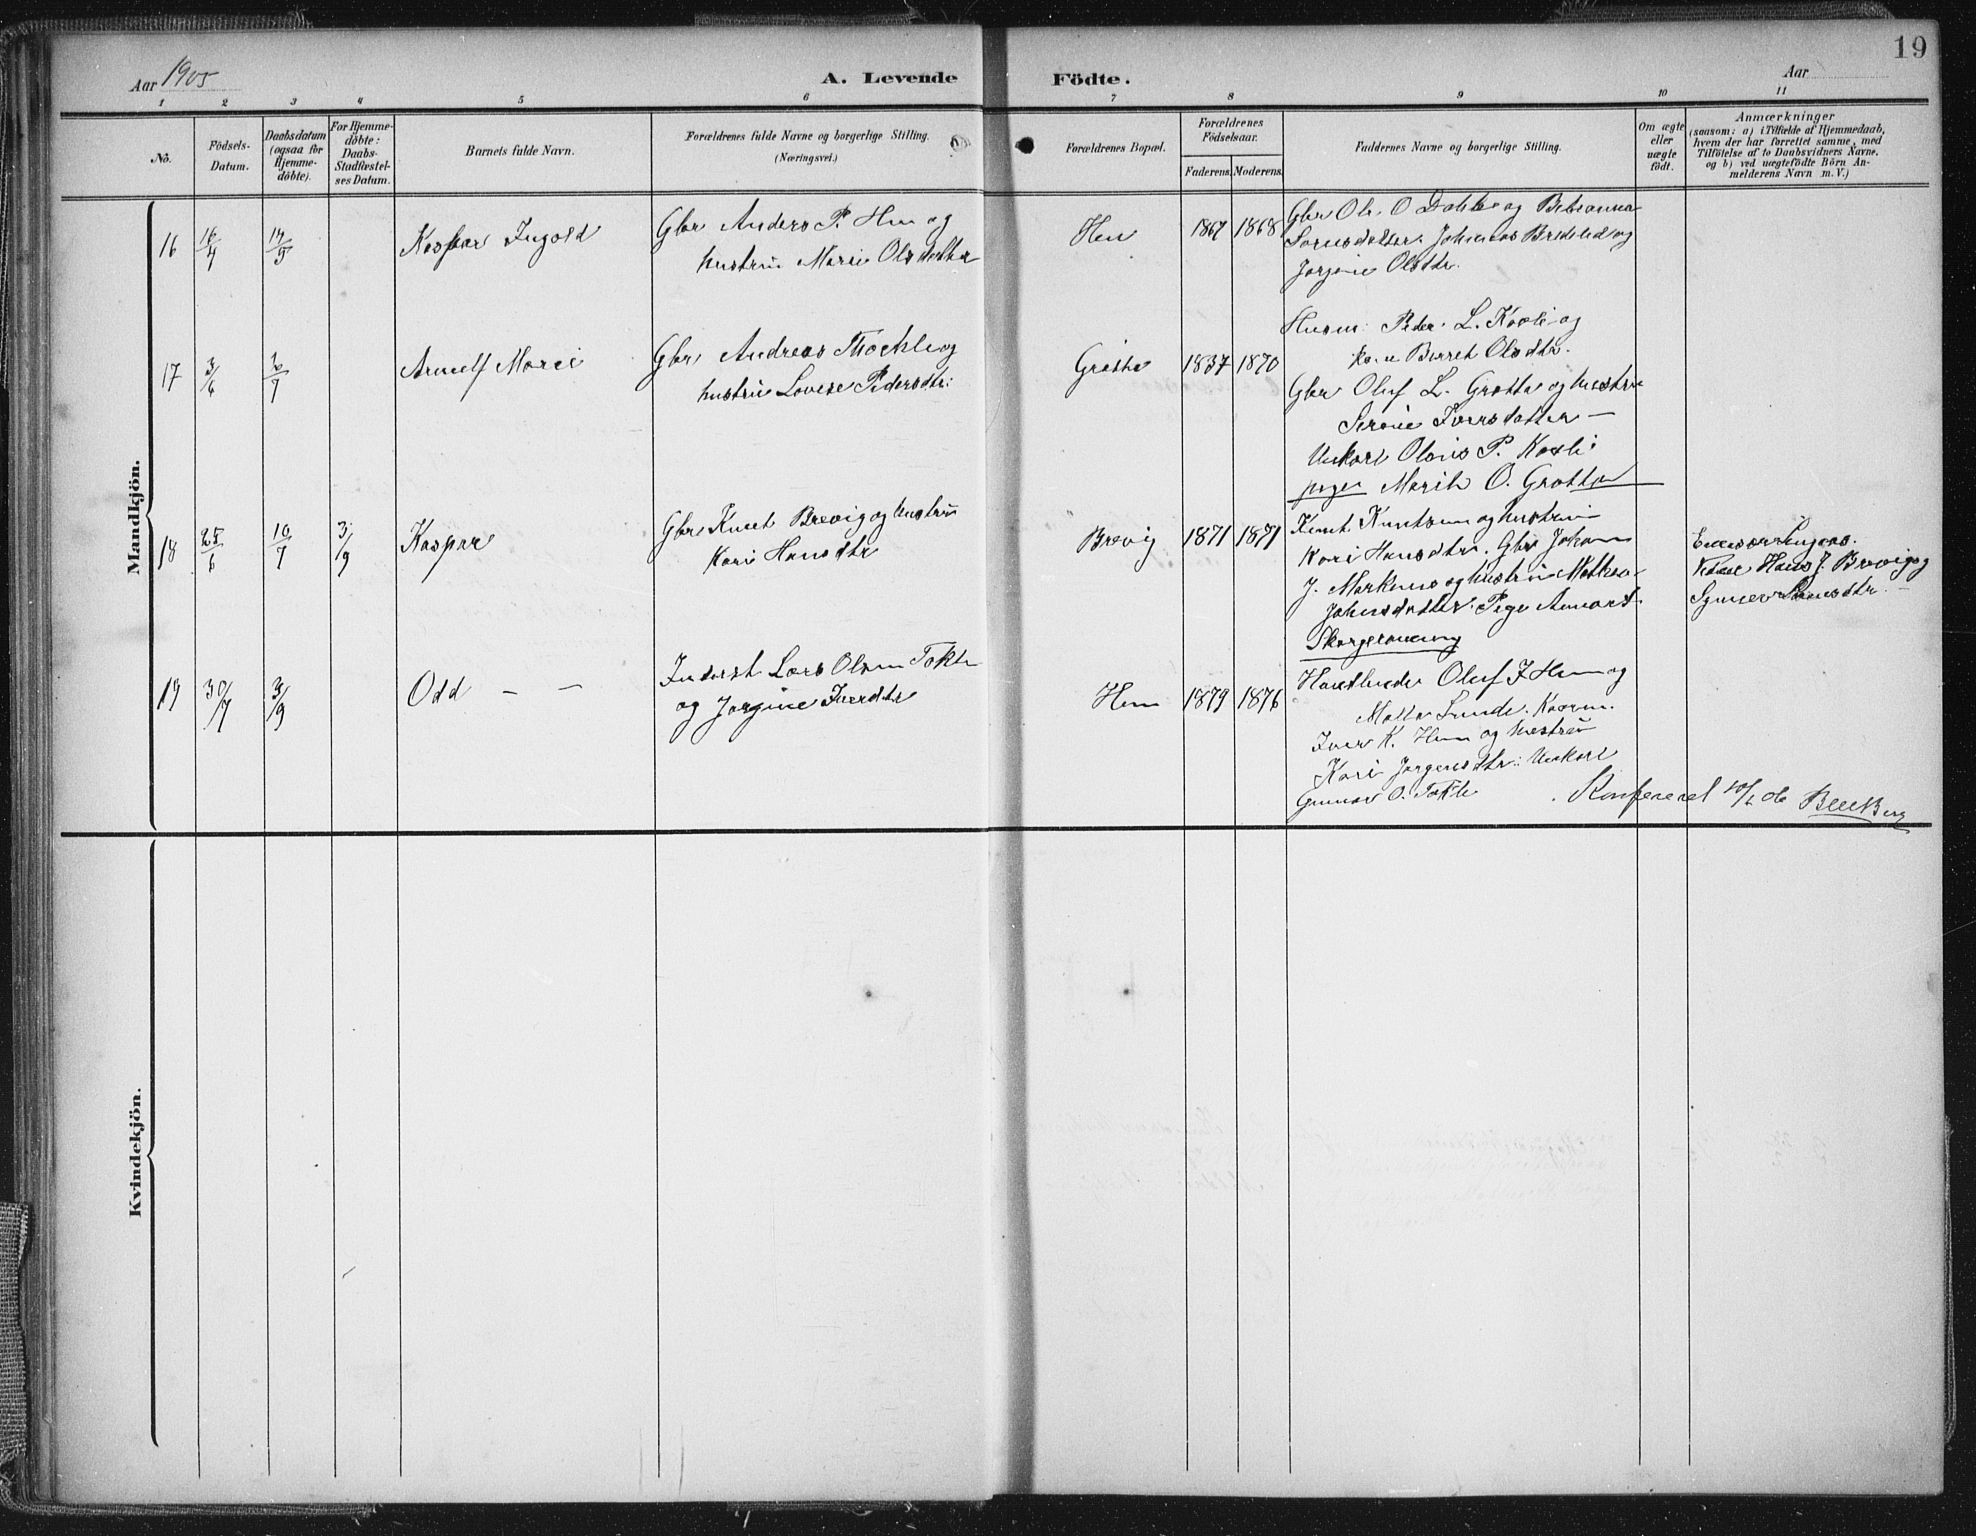 19
Aar 1905
A. Levende Födte.
Aar
1 2 3 4 5 6 7 8 9 10 11
No.
Födsels-
Datum.
Daabsdatum
(ogsaa for
Hjemme-
döbte).
For Hjemme-
döbte:
Daabs-
Stadfæstel-
ses Datum.
Barnets fulde Navn.
Forældrenes fulde Navne og borgerlige Stilling.
(Næringsvei.)
Forældrenes Bopæl.
Forældrenes
Födselsaar.
Faderens. Moderens.
Faddernes Navne og borgerlige Stilling.
Om ægte
eller
uægte
födt.
Anmærkninger
(saasom: a) i Tilfælde af Hjemmedaab,
hvem der har forrettet samme, med
Tilföielse af to Daabsvidners Navne.
og b) ved uægtefödte Börn An-
melderens Navn m. V.)
Mandkjön.
16 16/4 14/5
Kaspar Ingold
Gbr Anders P. Hen og
hustru Marie Olsdatter
Hen 1867 1868
Gbr Ole O Dahle og
Johannes
Jørgine Olsdtr.
17 3/6 2/7
Arnulf Marei
Gbr Andreas Thokle og
hustru Lovise Pedersdtr:
Grøtta 1837 1870
Husm. Peder L. Kaxli og
kone Berret Olsdtr.
Gbr Oluf L. Grøtta og hustru
Serine Iversdatter —
Unkarl Olaus P. Kaxli
pige Marith O. Grøtta
18 25/6 10/7 3/9
Kaspar
Gbr Knut Brevig og hustru
Kari Hansdtr
Brevig 1871 1871
Knut Knutsen og hustru
Kari Hansdtr. Gbr Johan
J. Marknes og hustru
Johnsdatter. Pige
Hans J. Brevig og
19 30/7 3/9
Odd — —
Inderst Lars Olsen Tokle
og Jørgine Iverdtr
Hen 1879 1876
Oluf I Hen og
Iver K. Hen og hustru
Kari Jørgensdtr: Unkarl
Gunnar O. Tokle
Konfereret
Kvindekjön.